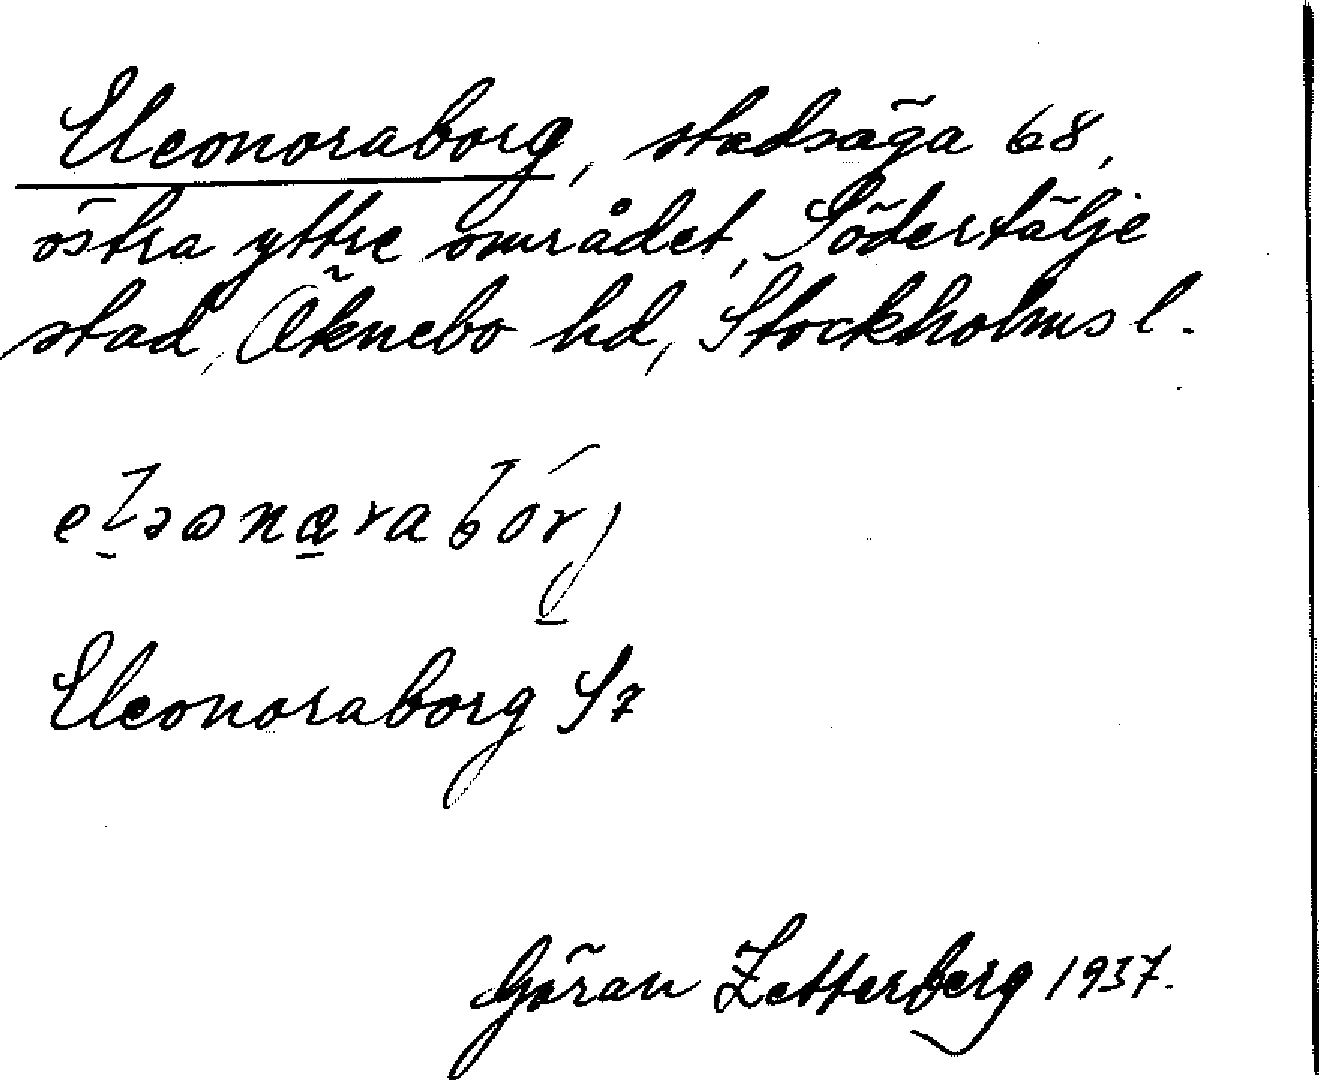 Eleonoraborg, stadsäga 68,
östra yttre området, Södertälje
stad, Öknebo hd, Stockholms l.
Eleonoraborg
Göran Zetterberg 1937.